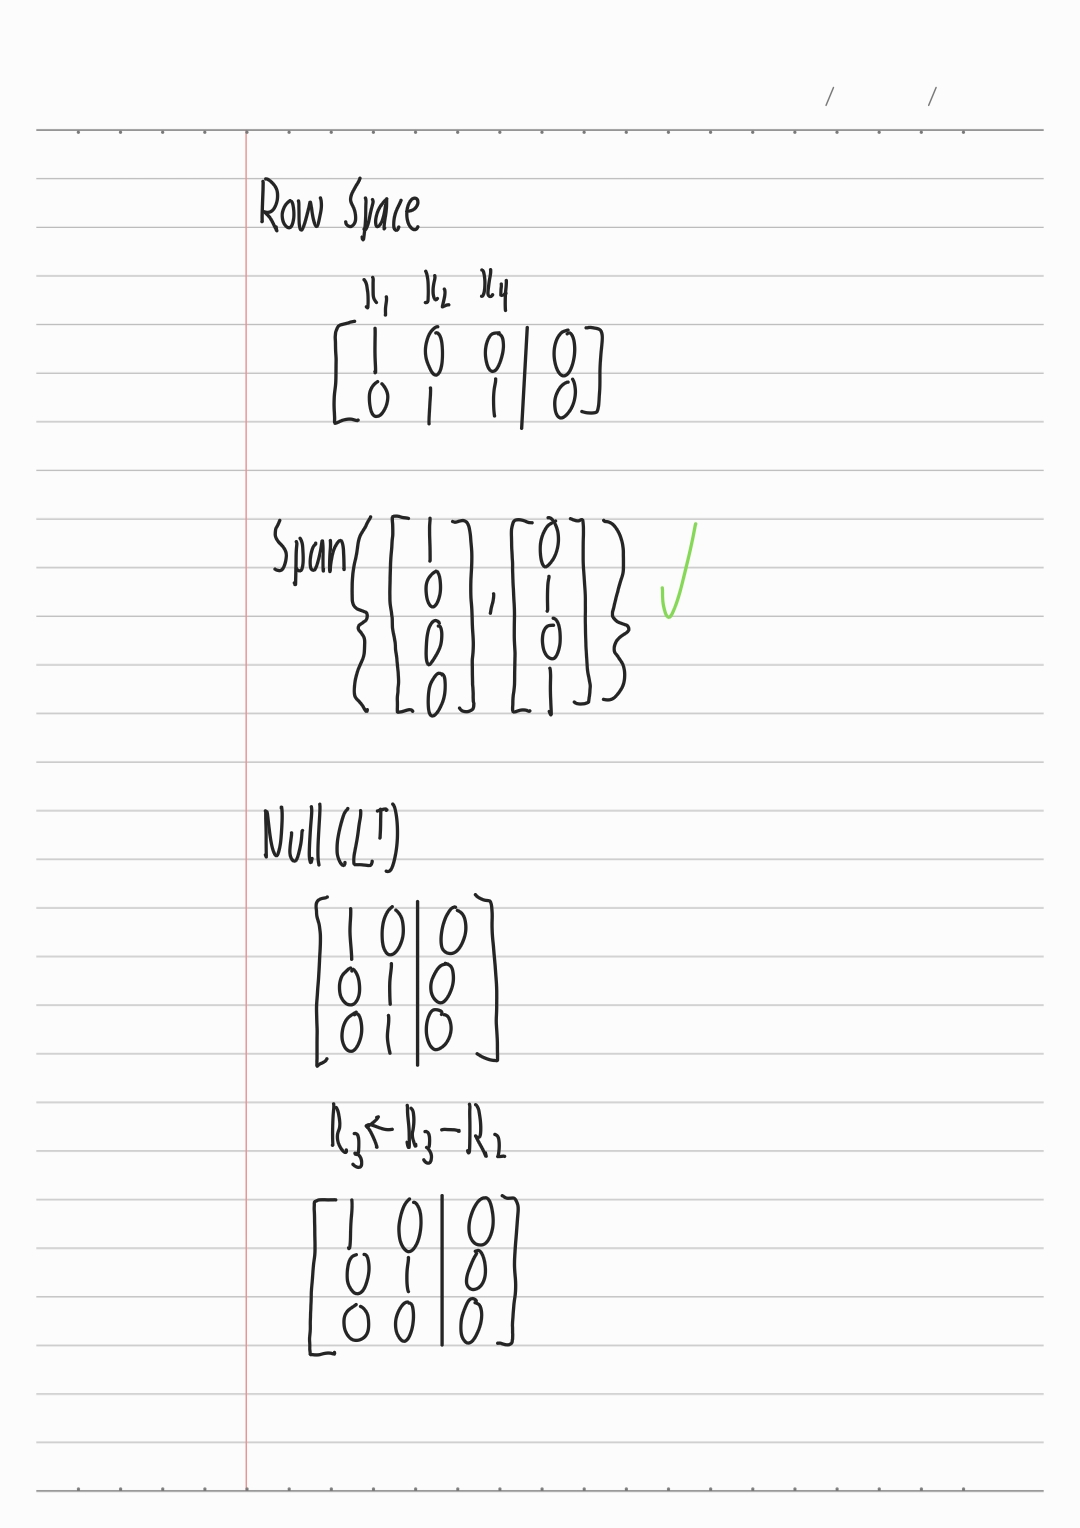 / /
Row Space
x₁ x₂ x₄
[ 1 0 0 | 0 ]
[ 0 1 1 | 0 ]
Span { [ 1 0 0 0 ] , [ 0 1 0 1 ] } ✓
Null (Lᵀ)
[ 1 0 | 0 ]
[ 0 1 | 0 ]
[ 0 1 | 0 ]
R₃ ← R₃ − R₂
[ 1 0 | 0 ]
[ 0 1 | 0 ]
[ 0 0 | 0 ]